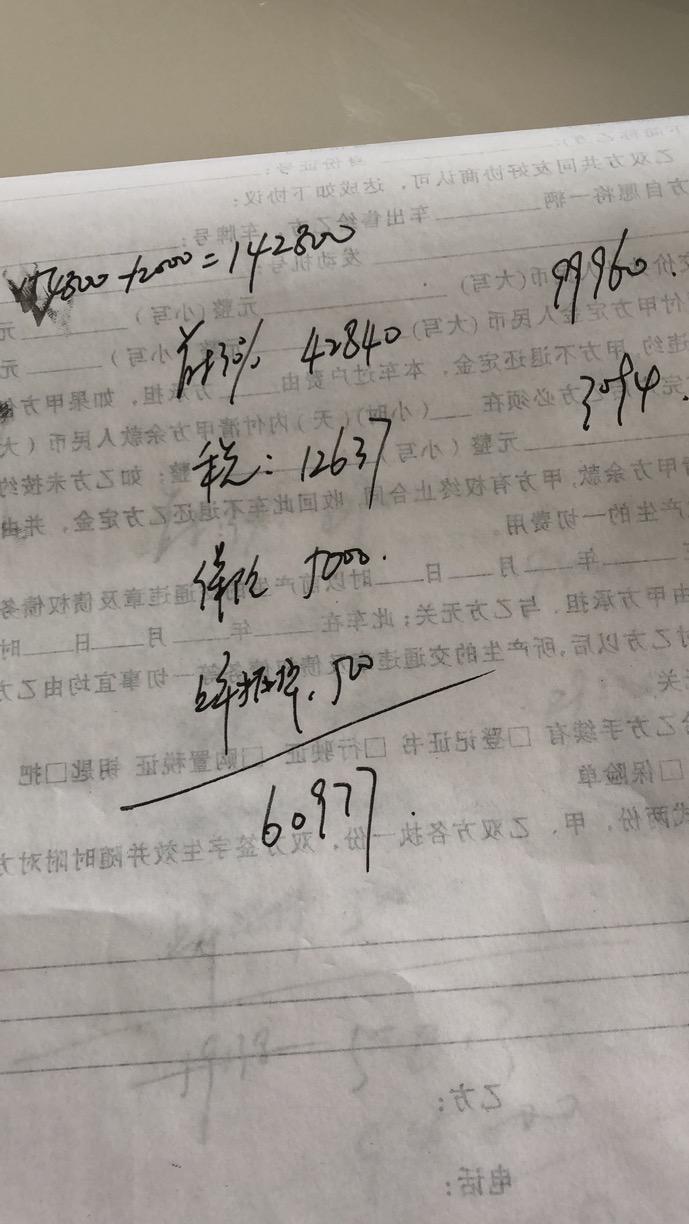 154800-12000=142800
首付30% 42840
税：12637
保险 5000.
上牌 500
60977.
99960.
3094.
乙双方共同友好协商认可，达成如下协议：
方自愿将一辆______车出售给乙方，车牌号：
发动机号
币(大写)______元整(小写)______元
付甲方定金人民币(大写)______(小写)______元
违约，甲方不退还定金，本车过户费由____方承担，如果甲方
方必须在____(小时)(天)内付清甲方余款人民币(大
元整(小写)______整；如乙方未按约
甲方余款，甲方有权终止合同，收回此车不退还乙方定金，并由
产生的一切费用。
____年____月____日____时以前产生的____通违章及债权债务
由甲方承担，与乙方无关；此车在____年____月____日____时
付乙方以后，所产生的交通违____债____一切事宜均由乙方
关。
给乙方手续有 □登记证书 □行驶证 □购置税证 钥匙□把
□保险单
式两份，甲、乙双方各执一份，双方签字生效并随时附对方
乙方：
电话：